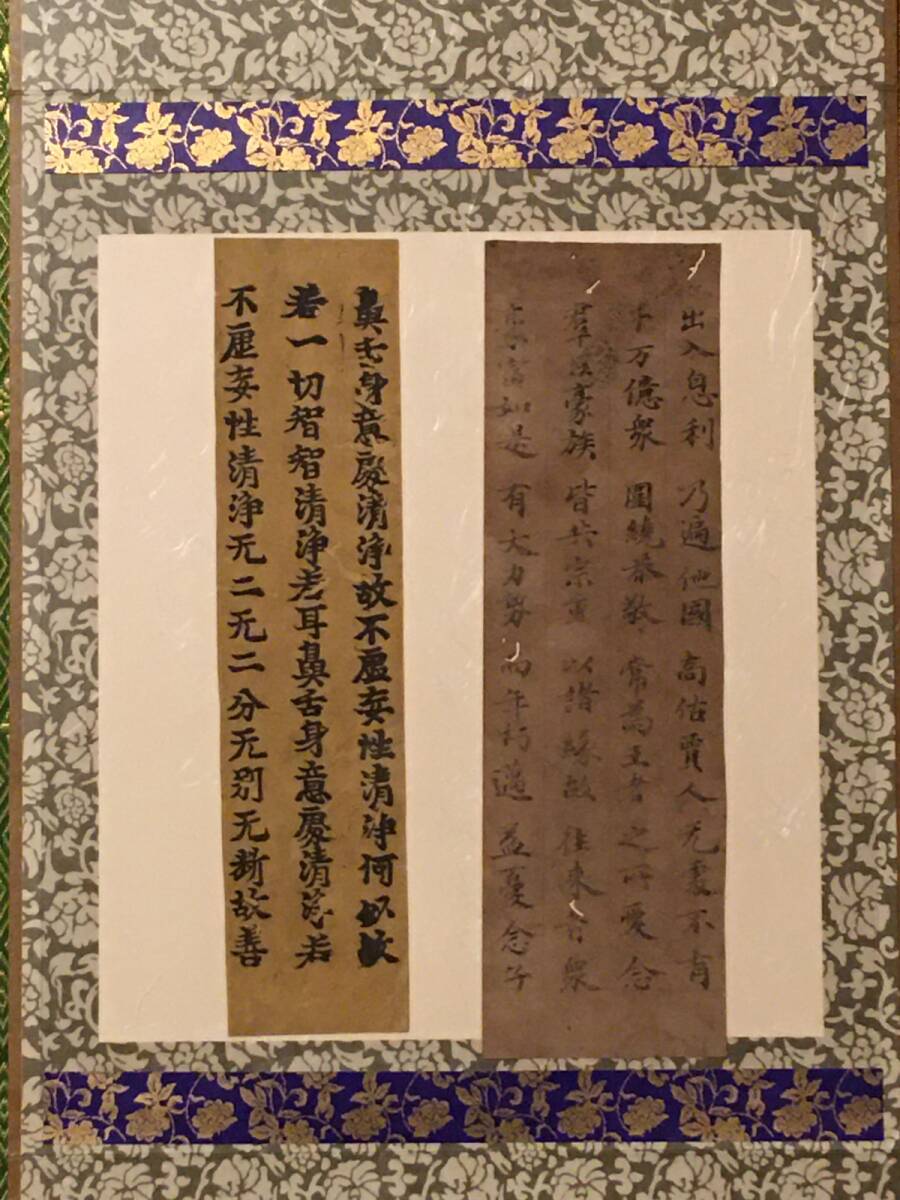 出入息利 乃遍他國 商估賈人 无處不有
千万億衆 圍繞恭敬 常為王者 之所愛念
群臣豪族 皆共宗重 以諸緣故 往來者衆
豪富如是 有大力勢 而年朽邁 益憂念子
鼻舌身意處清淨故不虛妄性清淨何以故
若一切智智清淨若耳鼻舌身意處清淨若
不虛妄性清淨无二无二分无别无斷故善